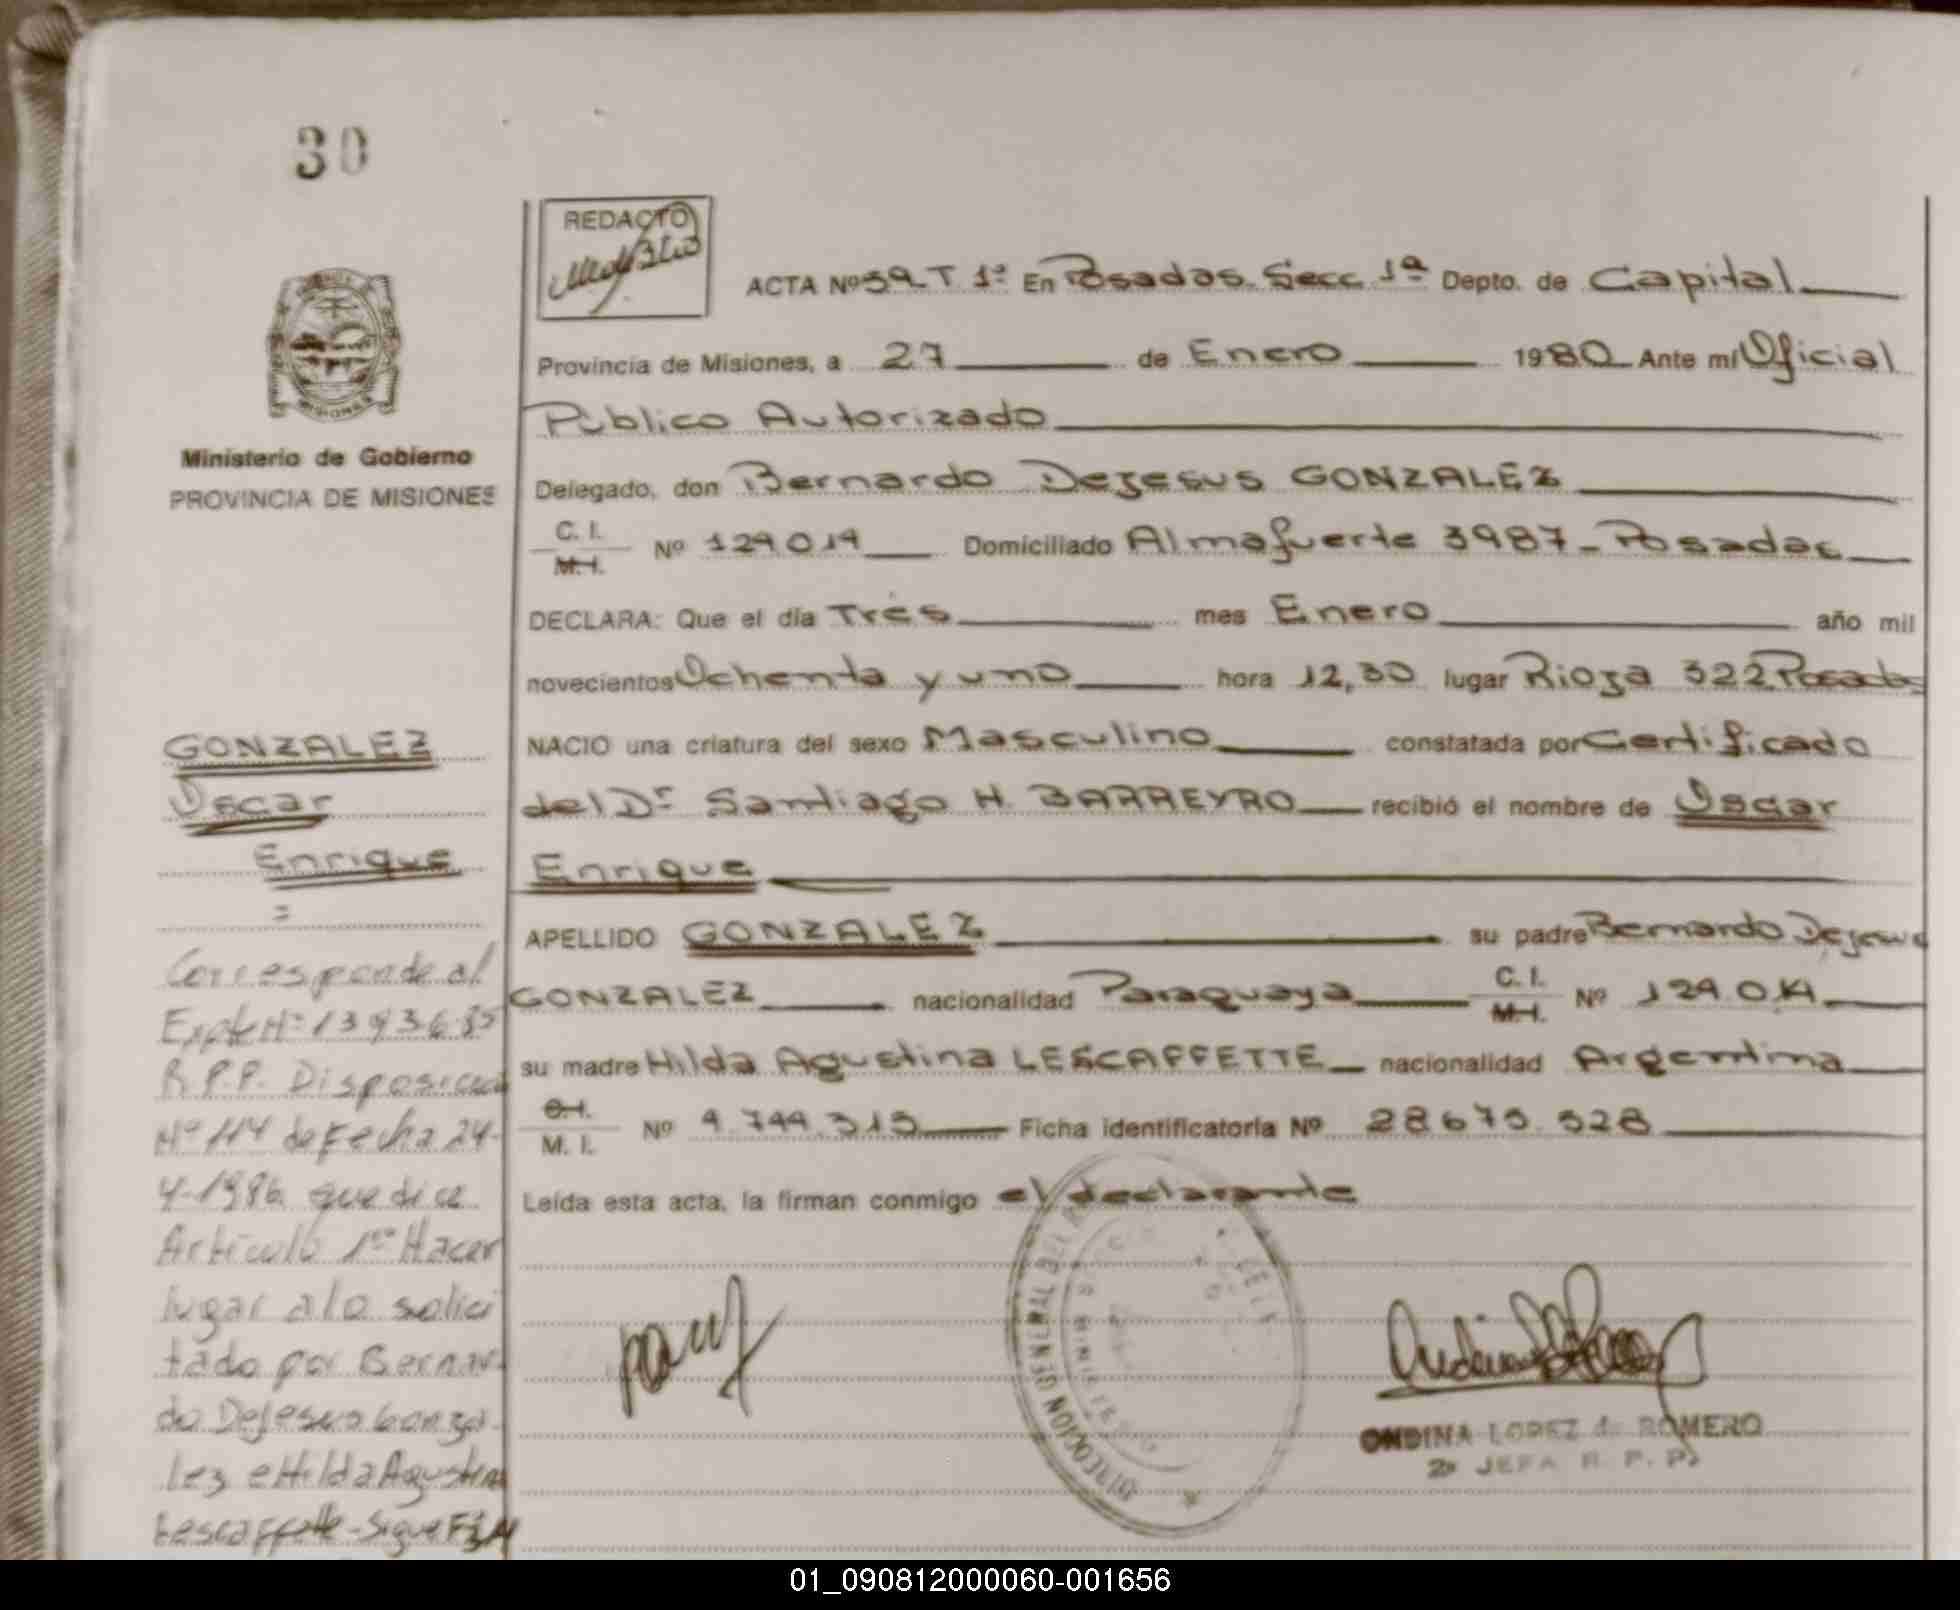 30
REDACTO
ACTA Nº 59 T 1º En Posadas. Secc. 1ª Depto. de Capital
Provincia de Misiones, a 27 de Enero 1980 Ante mí Oficial
Público Autorizado
Delegado, don Bernardo Dejesus GONZALEZ
C. I.
M. I.
Nº 129.014 Domiciliado Almafuerte 3987 - Posadas
DECLARA: Que el día Tres mes Enero año mil
novecientos Ochenta y uno hora 12,30 lugar Rioja 322 Posadas
NACIO una criatura del sexo Masculino constatada por Certificado
del Dr Santiago H. BARREYRO recibió el nombre de Oscar
Enrique
APELLIDO GONZALEZ su padre Bernardo Dejesus
GONZALEZ nacionalidad Paraguaya C. I.
M. I.
Nº 129.014
su madre Hilda Agustina LESCAFFETTE nacionalidad Argentina
C. I.
M. I.
Nº 4.744.315 Ficha identificatoria Nº 28675.528
Leída esta acta, la firman conmigo el declarante
DIRECCION GENERAL DEL
MINISTERIO
ONDINA LOPEZ de ROMERO
2ª JEFA R. P. P.
MISIONES
Ministerio de Gobierno
PROVINCIA DE MISIONES
GONZALEZ
Oscar
Enrique
=
Corresponde al
Expte Nº 13936-85
R.P.P. Disposicion
Nº 114 de Fecha 24-
4-1986 que dice
Artículo 1º Hacer
lugar a lo solici
tado por Bernar
do Dejesus Gonza-
lez e Hilda Agustina
Lescaffette - Sigue
01_090812000060-001656